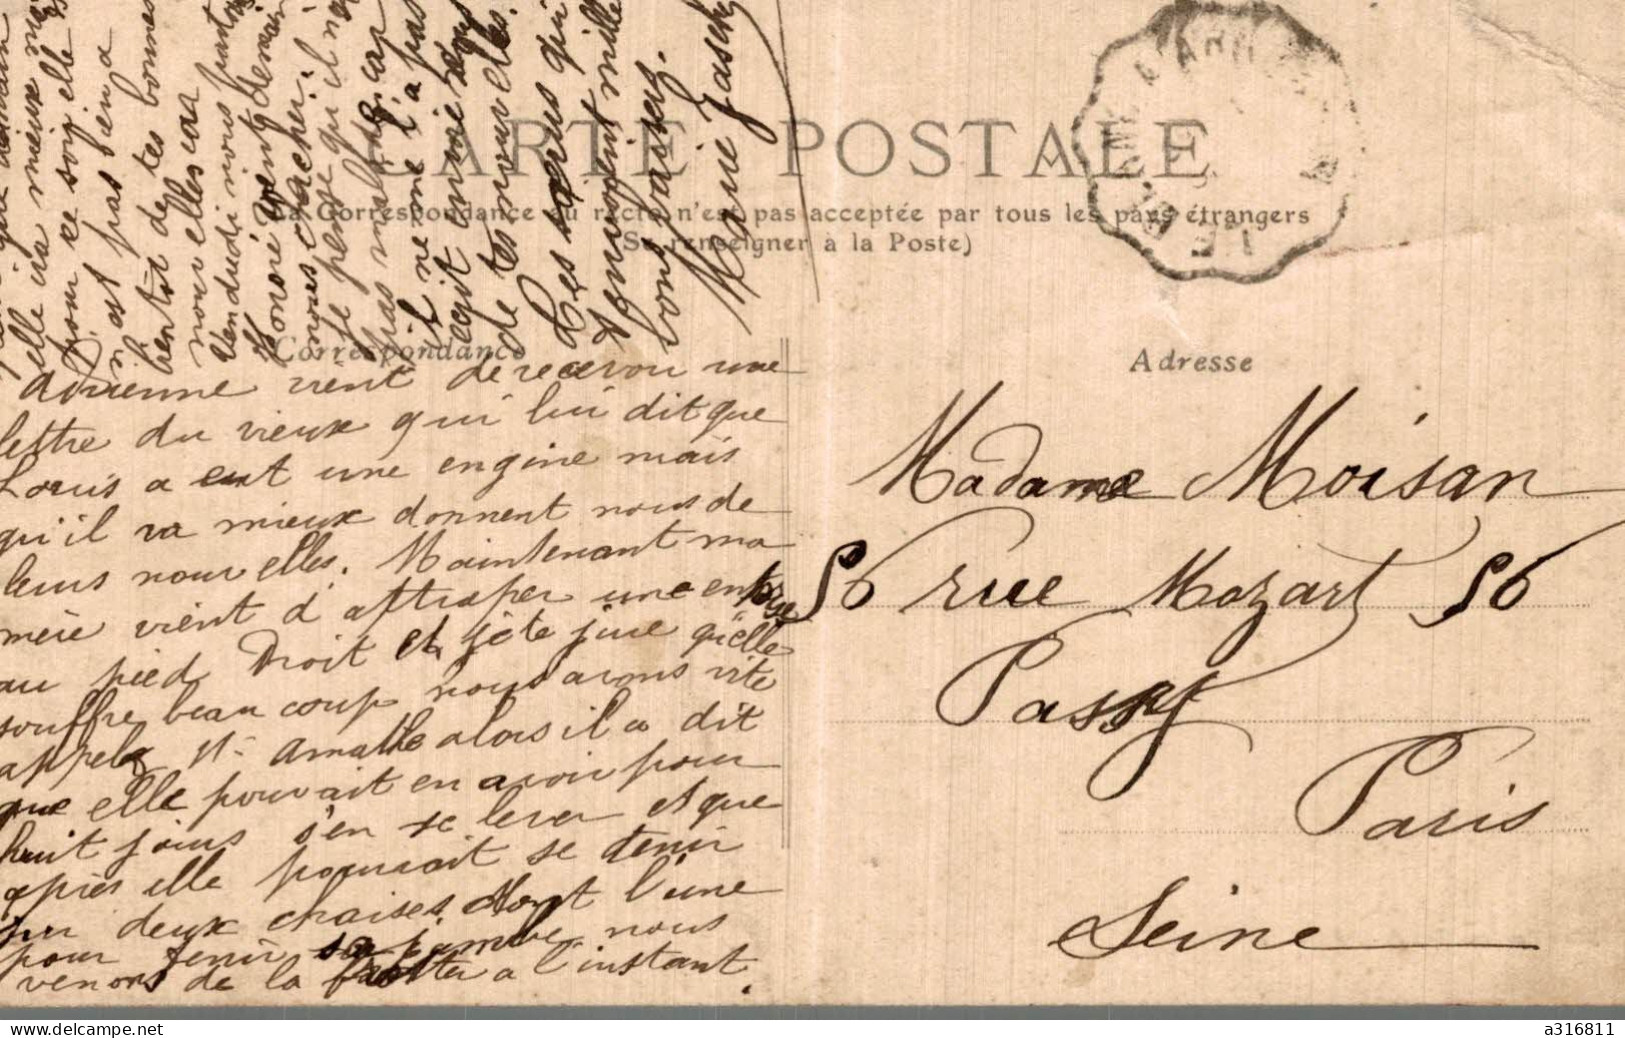 CARTE POSTALE
La Correspondance au recto n'est pas acceptée par tous les pays étrangers
(Se renseigner à la Poste)
Correspondance
Adrienne vient de recevoir une
lettre du vieux qui lui dit que
Louis a eut une engine mais
qu'il va mieux donnent nous de
leurs nouvelles. Maintenant ma
mère vient d'attraper une entorse
au pied Droit et je te jure qu'elle
souffre beaucoup nous avons vite
appelé Mr Amatte alors il a dit
que elle pouvait en avoir pour
huit jours s'en se lever et que
après elle pourrait se tenir
sur deux chaises dont l'une
pour tenir sa jambe nous
venons de la à l'instant.
elle ira mieux
pour ce soir elle
n'est pas bien a
bentôt de tes bonnes
nouvelles car
Vendudi nous partons
Honoré vient demain
nous chercher.
Je pense qu'il n'
pas malade car
il ne me l'a pas
écrit
de tes nouvelles.
Les sœurs qui
t'envoient mille
bons baisers.
Marie
Adresse
Madame Moisan
56 rue Mozart 56
Passy
Paris
Seine
a316811